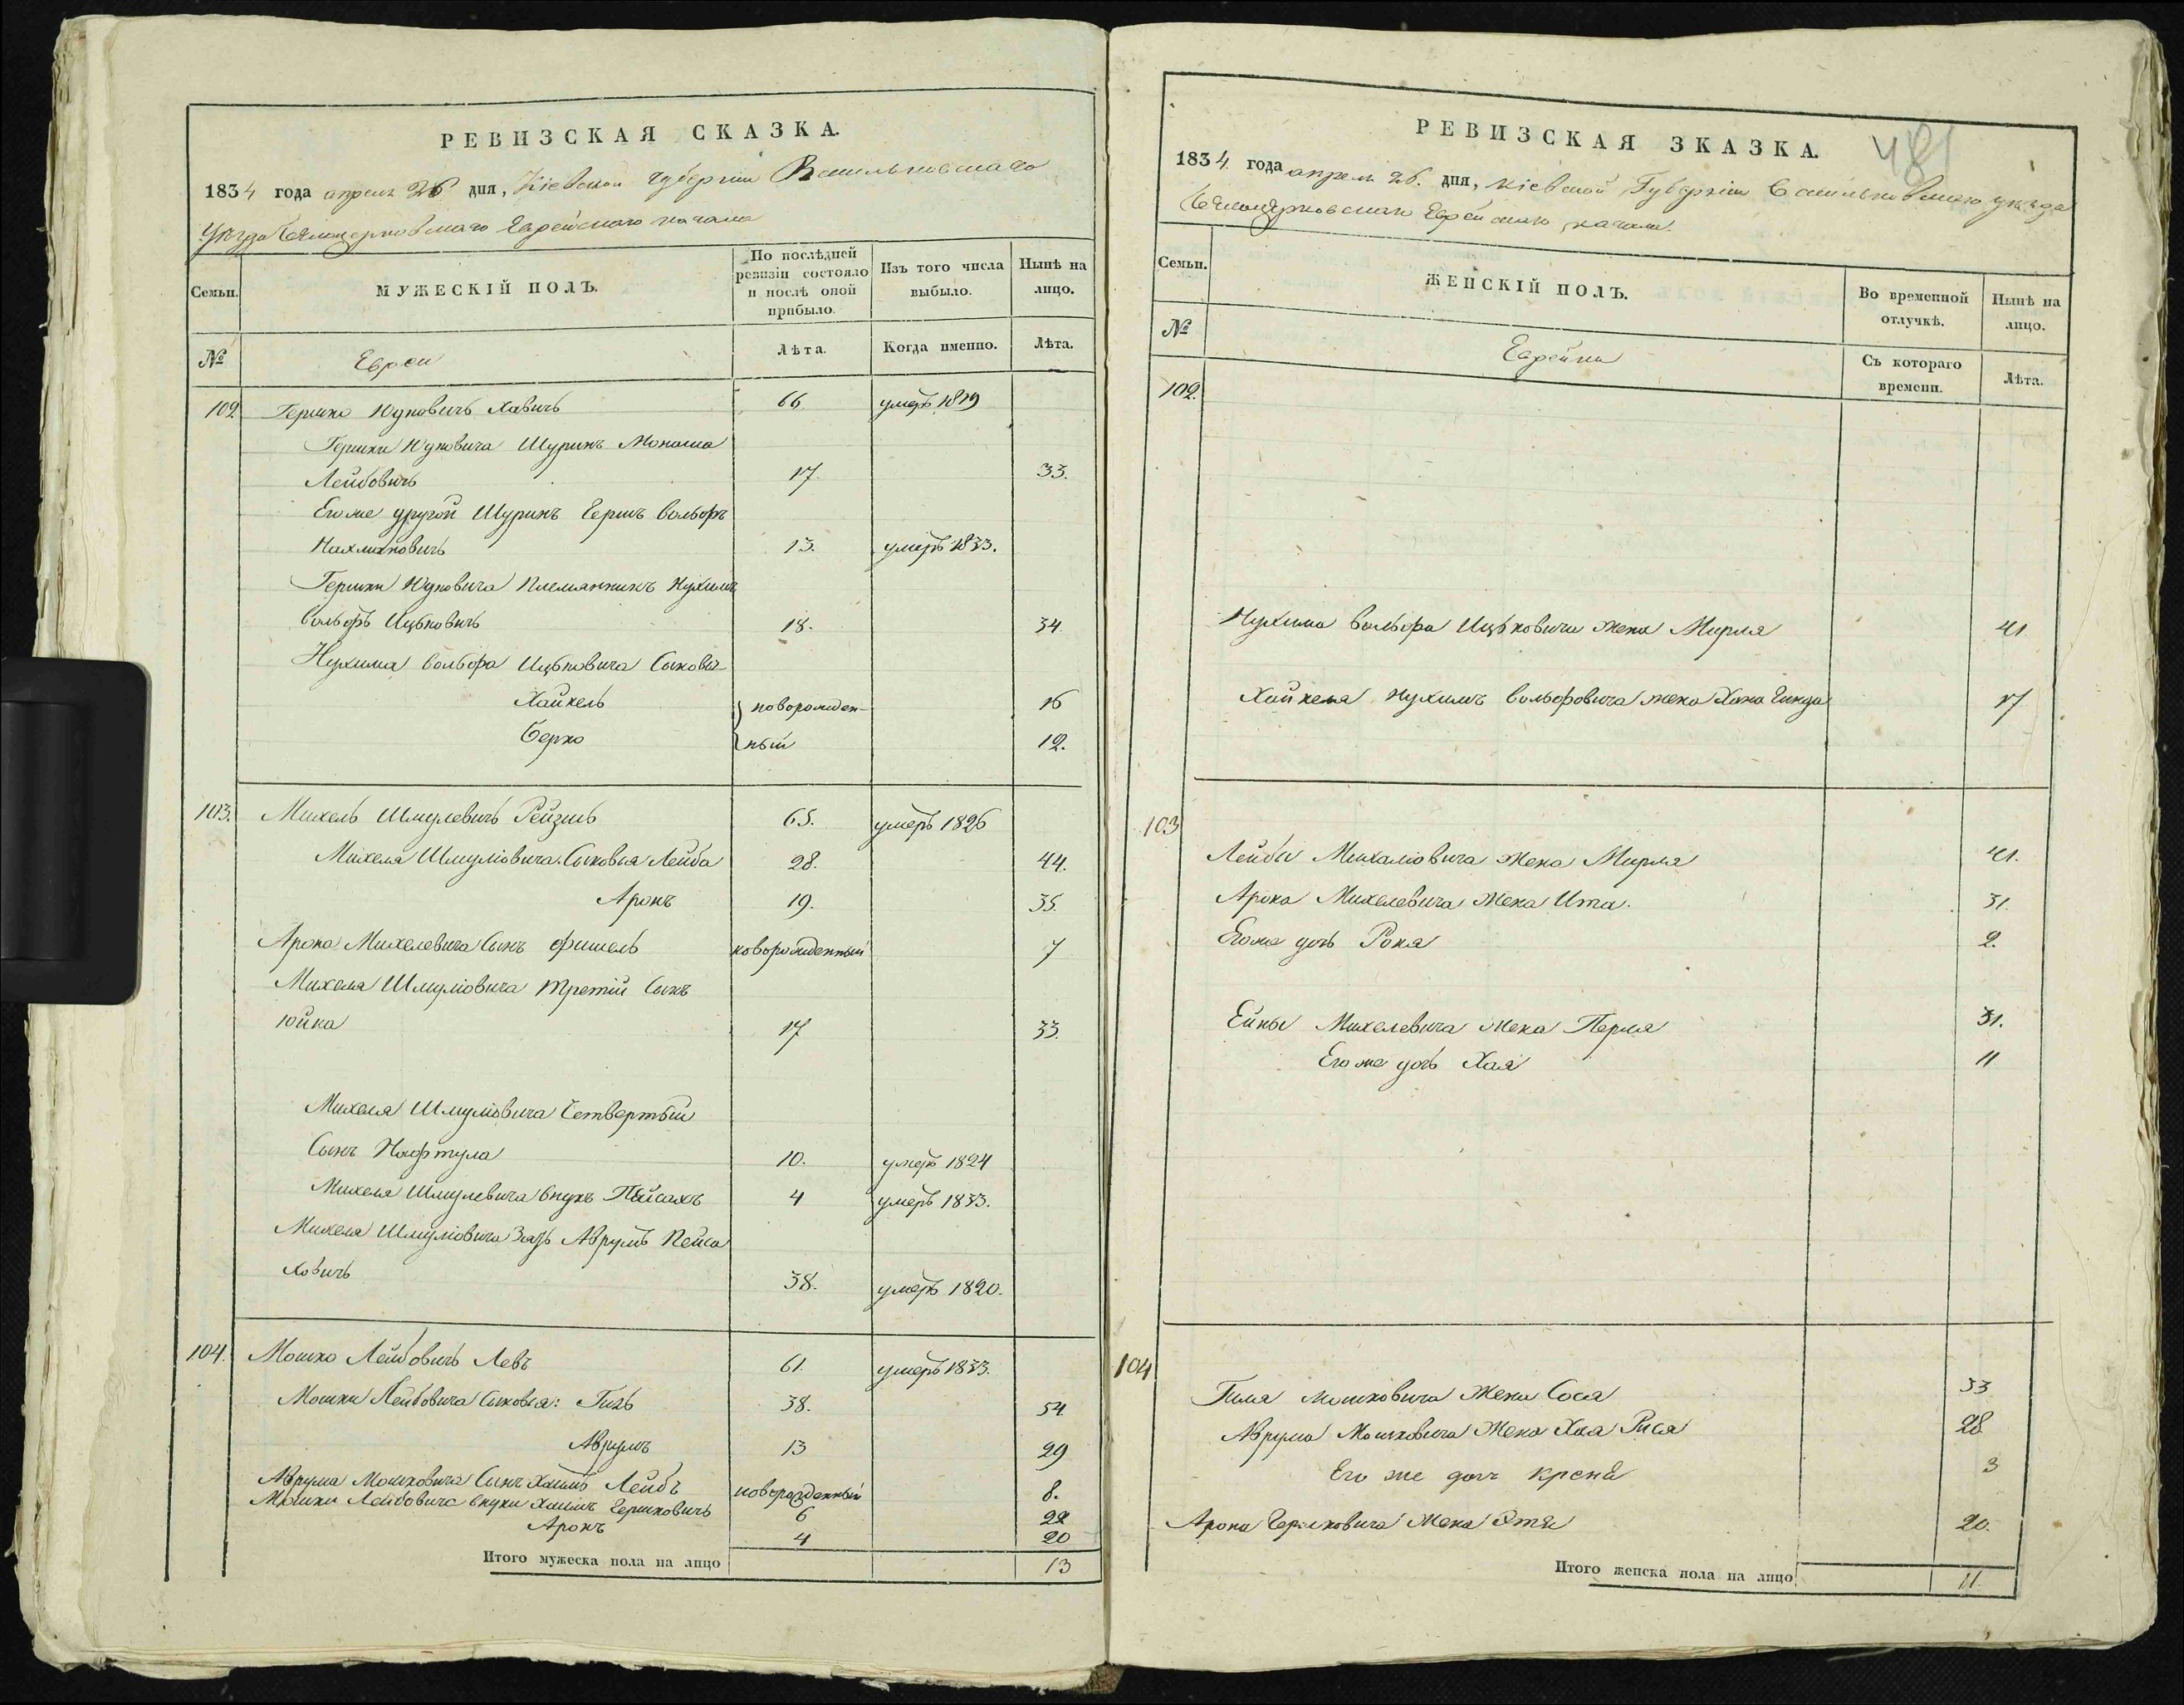 РЕВИЗСКАЯ СКАЗКА.
1834 года апреля 26 дня, Кіевской губерніи Васильковскаго
Уѣзда Белоцерковскаго Еврейскаго кагала
Семьи. МУЖЕСКІЙ ПОЛЪ. По послѣдней ревизіи состояло и послѣ оной прибыло. Изъ того числа выбыло. Нынѣ на лицо.
№ Евреи Лѣта. Когда именно. Лѣта.
102 Гершко Юдковичъ Хавичъ 66 умеръ 1819
Гершки Юдковича Шуринъ Монаша
Лейбовичъ 17. 33.
Его же другой Шуринъ Гершъ Вольфъ
Нахмановичъ 13. умеръ 1833.
Гершки Юдковича Племянникъ Нухимъ
Вольфъ Ицьковичъ 18. 34
Нухима Вольфа Ицьковича Сыновья
Хайкель новорожден- 16
Берко ный 12.
103. Михель Шмулевичъ Рейзишь 65. умеръ 1826
Михеля Шмуліовича Сыновья Лейба 28. 44.
Аронъ 19. 35.
Арона Михелевича Сынъ Фишель новорожденный 7
Михеля Шмуліовича третій Сынъ
Юйна 17 33.
Михеля Шмуліовича Четвертый
Сынъ Нафтула 10. умеръ 1824
Михеля Шмулевича Внукъ Пейсахъ 4 умеръ 1833.
Михеля Шмуліовича Зять Аврумъ Пейса
ховичъ 38. умеръ 1820.
104. Мошко Лейбовичъ Левъ 61. умеръ 1833.
Мошки Лейбовича Сыновья: Гиль 38. 54
Аврумъ 13 29
Аврума Мошковича Сынъ Хаимъ Лейбъ новорожденный 8.
Мошки Лейбовича внуки Хаимъ Гершковичъ 6 22
Аронъ 4 20
Итого мужеска пола на лицо 13
РЕВИЗСКАЯ ЗКАЗКА. 481
1834 года апреля 26. дня, Кіевской Губерніи Васильковскаго уѣзда
Белоцерковскаго Еврейскаго кагала.
Семьи. ЖЕНСКІЙ ПОЛЪ. Во временной отлучкѣ. Нынѣ на лицо.
№ Еврейки Съ котораго времени. Лѣта.
102.
Нухима Вольфа Ицьковича жена Мирля 41
Хайкеля Нухимъ Вольфовича жена Хана Гинда 17
103
Лейбы Михаліовича жена Мирля 41.
Арона Михелевича жена Ита. 31.
Его же дочь Роня 2.
Ейны Михелевича жена Перля 31.
Его же дочь Хая 11
104
Гиля Мошковича Жена Сося 33
Аврума Мошковича Жена Хая Рися 28
Его же дочь Креня 3
Арона Гершковича Жена Этя 20.
Итого женска пола на лицо 11.